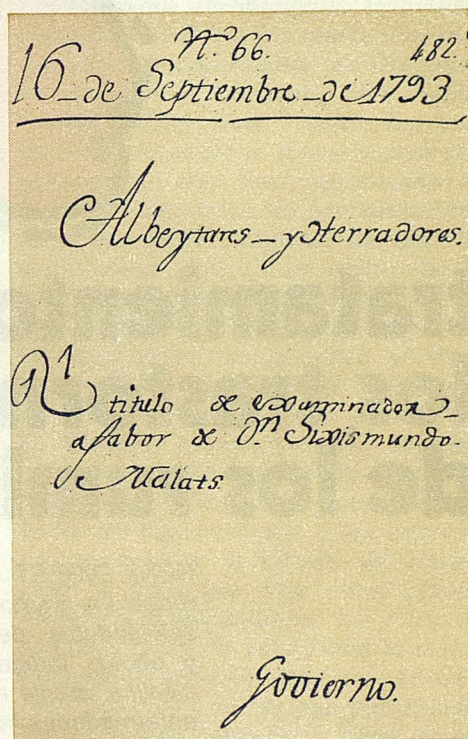 N.º 66. 482.
16 de Septiembre de 1793
Albeytares y Herradores.
Rl titulo de examinador
a fabor de Dn. Sixismundo
Malats
Govierno.